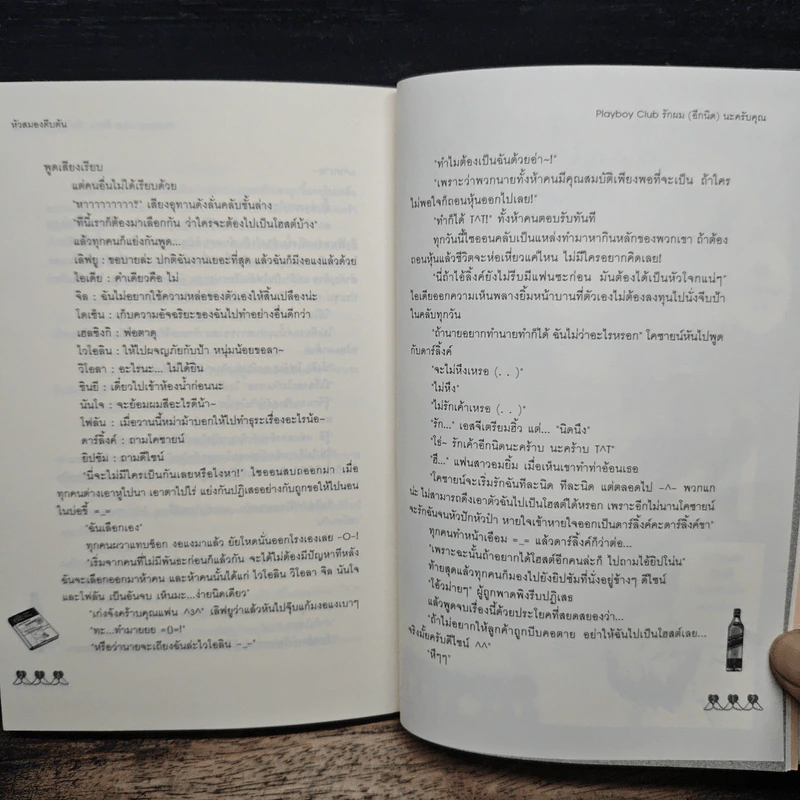 หัวสมองตีบตัน
พูดเสียงเรียบ
แต่คนอื่นไม่ได้เรียบด้วย
"หาาาาาาาาาา!?" เสียงอุทานดังลั่นคลับชั้นล่าง
"ทีนี้เราก็ต้องมาเลือกกัน ว่าใครจะต้องไปเป็นโฮสต์บ้าง"
แล้วทุกคนก็แย่งกันพูด...
เลิฟยู : ขอบายล่ะ ปกติฉันงานเยอะที่สุด แล้วฉันก็มีงอแงแล้วด้วย
ไอเดีย : คำเดียวคือ ไม่
จิล : ฉันไม่อยากใช้ความหล่อของตัวเองให้สิ้นเปลืองน่ะ
โดเซ็น : เก็บความอัจฉริยะของฉันไปทำอย่างอื่นดีกว่า
เฮลซิงกิ : พ่อตาดุ
ไวโอลิน : ให้ไปผจญภัยกับป้า หนุ่มน้อยขอลา~
วิโอลา : อะไรนะ... ไม่ได้ยิน
ชินยี : เดี๋ยวไปเข้าห้องน้ำก่อนนะ
นันโจ : จะย้อมผมสีอะไรดีน้า~
โฟลัน : เมื่อวานนี้หม่าม้าบอกให้ไปทำธุระเรื่องอะไรน้อ~
ดาร์ลิ้งค์ : ถามโคซายน์
ยิปซัม : ถามดีไซน์
"นี่จะไม่มีใครเป็นกันเลยหรือไงหา!" ไซออนสบถออกมา เมื่อ
ทุกคนต่างเอาหูไปนา เอาตาไปไร่ แย่งกันปฏิเสธอย่างกับถูกขอให้ไปนอน
ในบ่อขี้ =_=
"ฉันเลือกเอง"
ทุกคนผวาแทบช็อก งอแงมาแล้ว ยัยโหดนั่นออกโรงเองเลย -O-!
"เริ่มจากคนที่ไม่มีพันธะก่อนก็แล้วกัน จะได้ไม่ต้องมีปัญหาทีหลัง
ฉันจะเลือกออกมาห้าคน และห้าคนนั้นได้แก่ ไวโอลิน วิโอลา จิล นันโจ
และโฟลัน เป็นอันจบ เห็นมะ...ง่ายนิดเดียว"
"เก่งจังคร้าบคุณแฟน ^3^" เลิฟยูว่าแล้วหันไปจุ๊บแก้มงอแงเบาๆ
"ทะ...ทำมายยย =O=!"
"หรือว่านายจะเถียงฉันล่ะไวโอลิน -_-"
Playboy Club รักผม (อีกนิด) นะครับคุณ
"ทำไมต้องเป็นฉันด้วยอ่า~!"
"เพราะว่าพวกนายทั้งห้าคนมีคุณสมบัติเพียงพอที่จะเป็น ถ้าใคร
ไม่พอใจก็ถอนหุ้นออกไปเลย!"
"ทำก็ได้ T^T!" ทั้งห้าคนตอบรับทันที
ทุกวันนี้ไซออนคลับเป็นแหล่งทำมาหากินหลักของพวกเขา ถ้าต้อง
ถอนหุ้นแล้วชีวิตจะห่อเหี่ยวแค่ไหน ไม่มีใครอยากคิดเลย!
"นี่ถ้าไอ้ลิ้งค์ยังไม่รีบมีแฟนซะก่อน มันต้องได้เป็นหัวโจกแน่ๆ"
ไอเดียออกความเห็นพลางยิ้มหน้าบานที่ตัวเองไม่ต้องลงทุนไปนั่งจีบป้า
ในคลับทุกวัน
"ถ้านายอยากทำนายทำก็ได้ ฉันไม่ว่าอะไรหรอก" โคซายน์หันไปพูด
กับดาร์ลิ้งค์
"จะไม่หึงเหรอ (. . )"
"ไม่หึง"
"ไม่รักเค้าเหรอ (. . )"
"รัก..." เอสจีเตรียมฮิ้ว แต่... "นิดนึง"
"โธ่~ รักเค้าอีกนิดนะคร้าบ นะคร้าบ T^T"
"ฮึ..." แฟนสาวอมยิ้ม เมื่อเห็นเขาทำท่าอ้อนเธอ
"โคซายน์จะเริ่มรักฉันทีละนิด ทีละนิด แต่ตลอดไป -^- พวกแก
น่ะ ไม่สามารถดึงเอาตัวฉันไปเป็นโฮสต์ได้หรอก เพราะอีกไม่นานโคซายน์
จะรักฉันจนหัวปักหัวปำ หายใจเข้าหายใจออกเป็นดาร์ลิ้งค์คะดาร์ลิ้งค์ขา"
ทุกคนทำหน้าเอือม =_= แล้วดาร์ลิ้งค์ก็ว่าต่อ...
"เพราะฉะนั้นถ้าอยากได้โฮสต์อีกคนล่ะก็ ไปถามไอ้ยิปโน่น"
ท้ายสุดแล้วทุกคนก็มองไปยังยิปซัมที่นั่งอยู่ข้างๆ ดีไซน์
"โอ๊วม่ายๆ" ผู้ถูกพาดพิงรีบปฏิเสธ
แล้วพูดจบเรื่องนี้ด้วยประโยคที่สยดสยองว่า...
"ถ้าไม่อยากให้ลูกค้าถูกบีบคอตาย อย่าให้ฉันไปเป็นโฮสต์เลย...
จริงมั้ยครับดีไซน์ ^^"
"หึๆๆ"